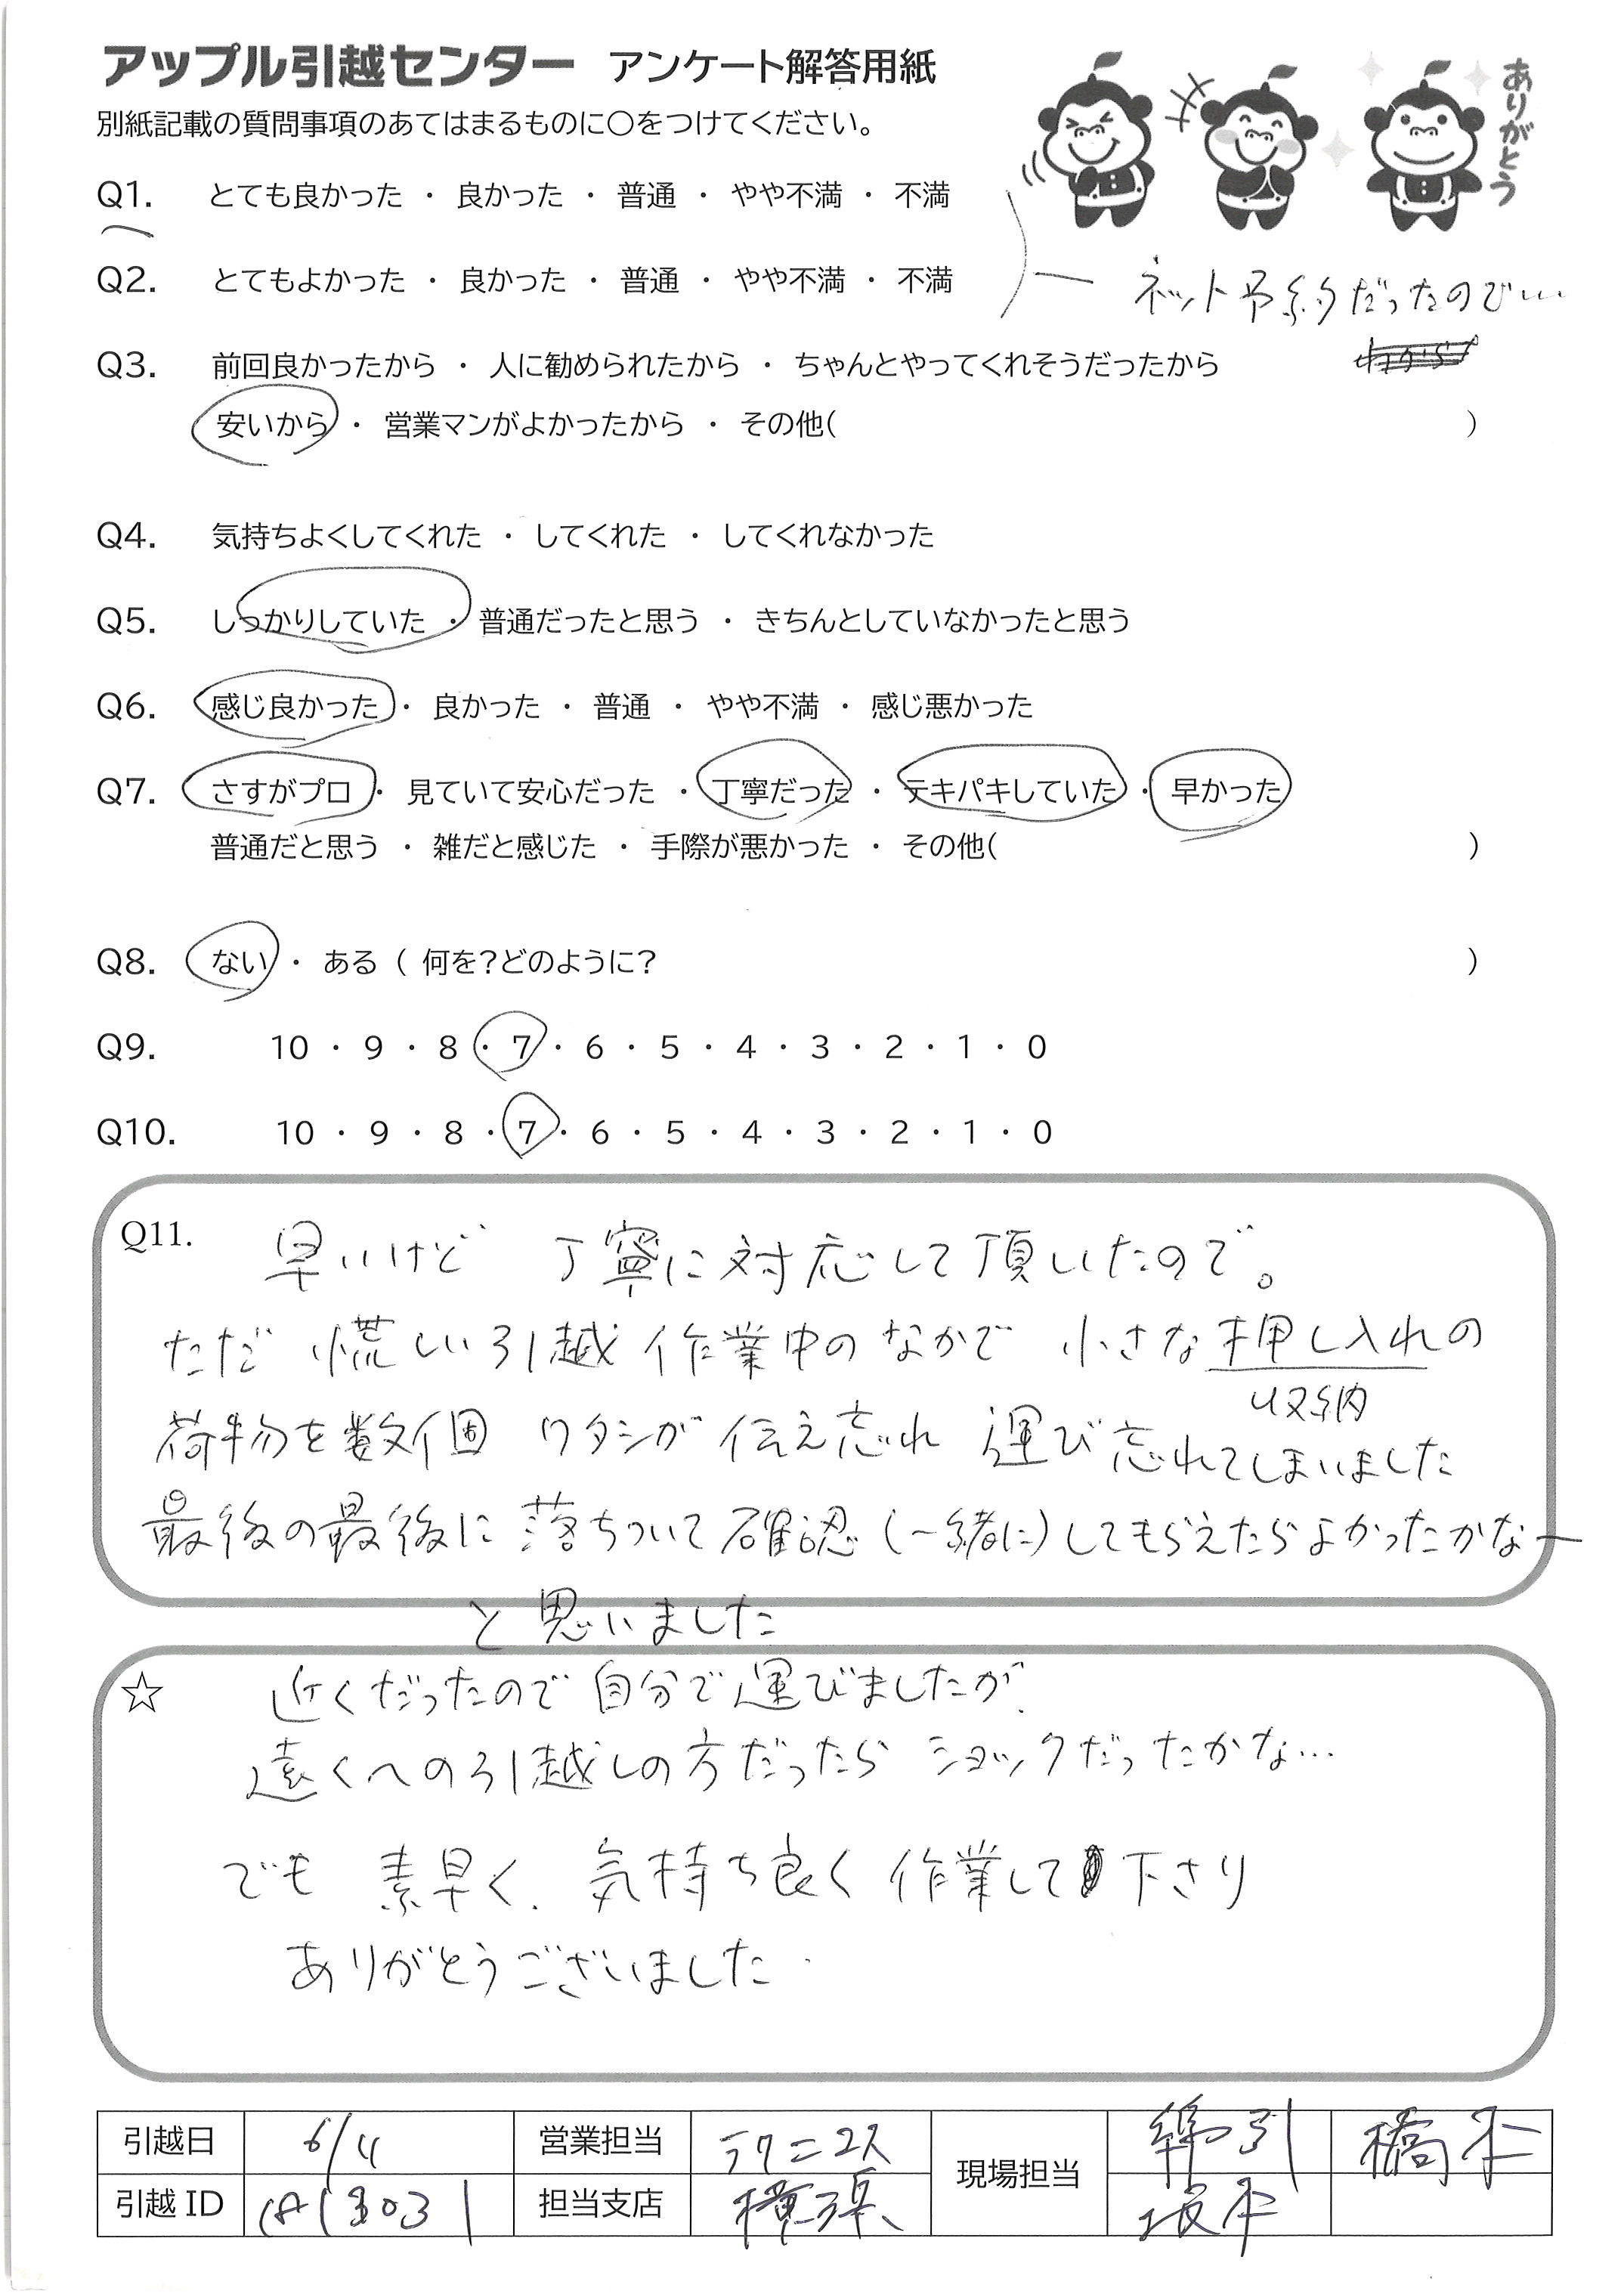 アップル引越センター アンケート解答用紙
ありがとう
別紙記載の質問事項のあてはまるものに〇をつけてください。
Q1. とても良かった ・ 良かった ・ 普通 ・ やや不満 ・ 不満
Q2. とてもよかった ・ 良かった ・ 普通 ・ やや不満 ・ 不満
ネット予約だったので…
Q3. 前回良かったから ・ 人に勧められたから ・ ちゃんとやってくれそうだったから
安いから ・ 営業マンがよかったから ・ その他( )
Q4. 気持ちよくしてくれた ・ してくれた ・ してくれなかった
Q5. しっかりしていた ・ 普通だったと思う ・ きちんとしていなかったと思う
Q6. 感じ良かった ・ 良かった ・ 普通 ・ やや不満 ・ 感じ悪かった
Q7. さすがプロ ・ 見ていて安心だった ・ 丁寧だった ・ テキパキしていた ・ 早かった
普通だと思う ・ 雑だと感じた ・ 手際が悪かった ・ その他( )
Q8. ない ・ ある ( 何を?どのように? )
Q9. 10 ・ 9 ・ 8 ・ 7 ・ 6 ・ 5 ・ 4 ・ 3 ・ 2 ・ 1 ・ 0
Q10. 10 ・ 9 ・ 8 ・ 7 ・ 6 ・ 5 ・ 4 ・ 3 ・ 2 ・ 1 ・ 0
Q11. 早いけど 丁寧に対応して頂いたので。
ただ 慌しい引越作業中のなかで 小さな押し入れの
収納
荷物を数個 ワタシが伝え忘れ 運び忘れてしまいました
最後の最後に落ちついて確認(一緒に)してもらえたらよかったかなー
と思いました
☆ 近くだったので自分で運びましたが、
遠くへの引越しの方だったら ショックだったかな…
でも 素早く、気持ち良く作業して下さり
ありがとうございました
引越日 6/4 営業担当 現場担当 綿引 橋本
引越ID 担当支店 横浜 坂本